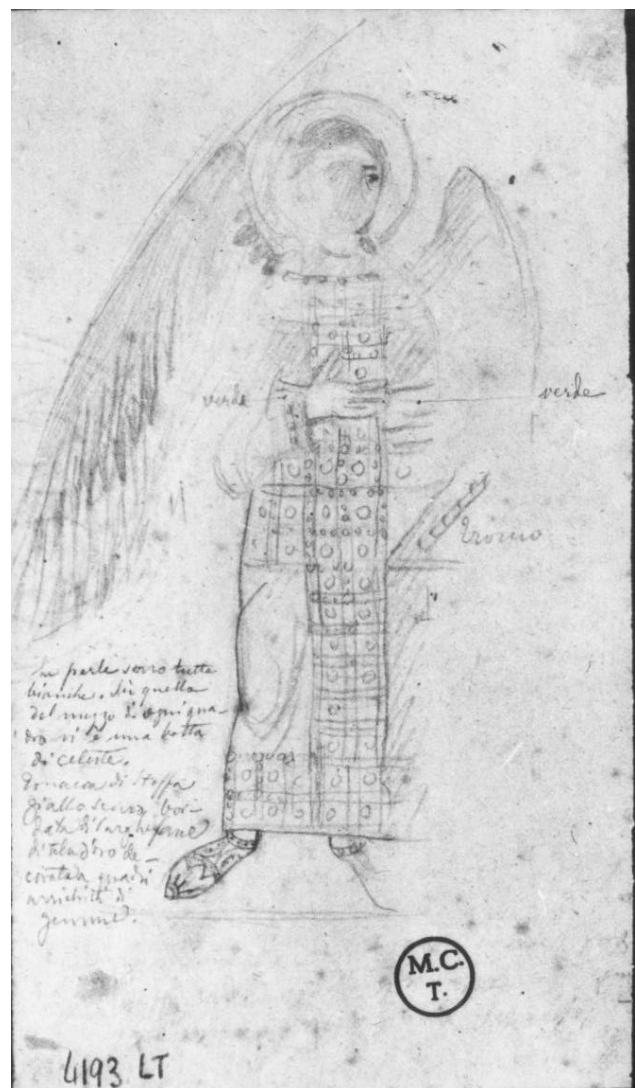 verde
verde
Trono
Le perle sono tutte
bianche. Su quella
del mezzo di ogni qua-
dro vi è una botta
di celeste.
Tonaca di stoffa
giallo scura, bor-
data di larghe fasce
di tela d'oro de-
corate a quadri
arricchiti di
gemme.
M.C.
T.
4193 LT